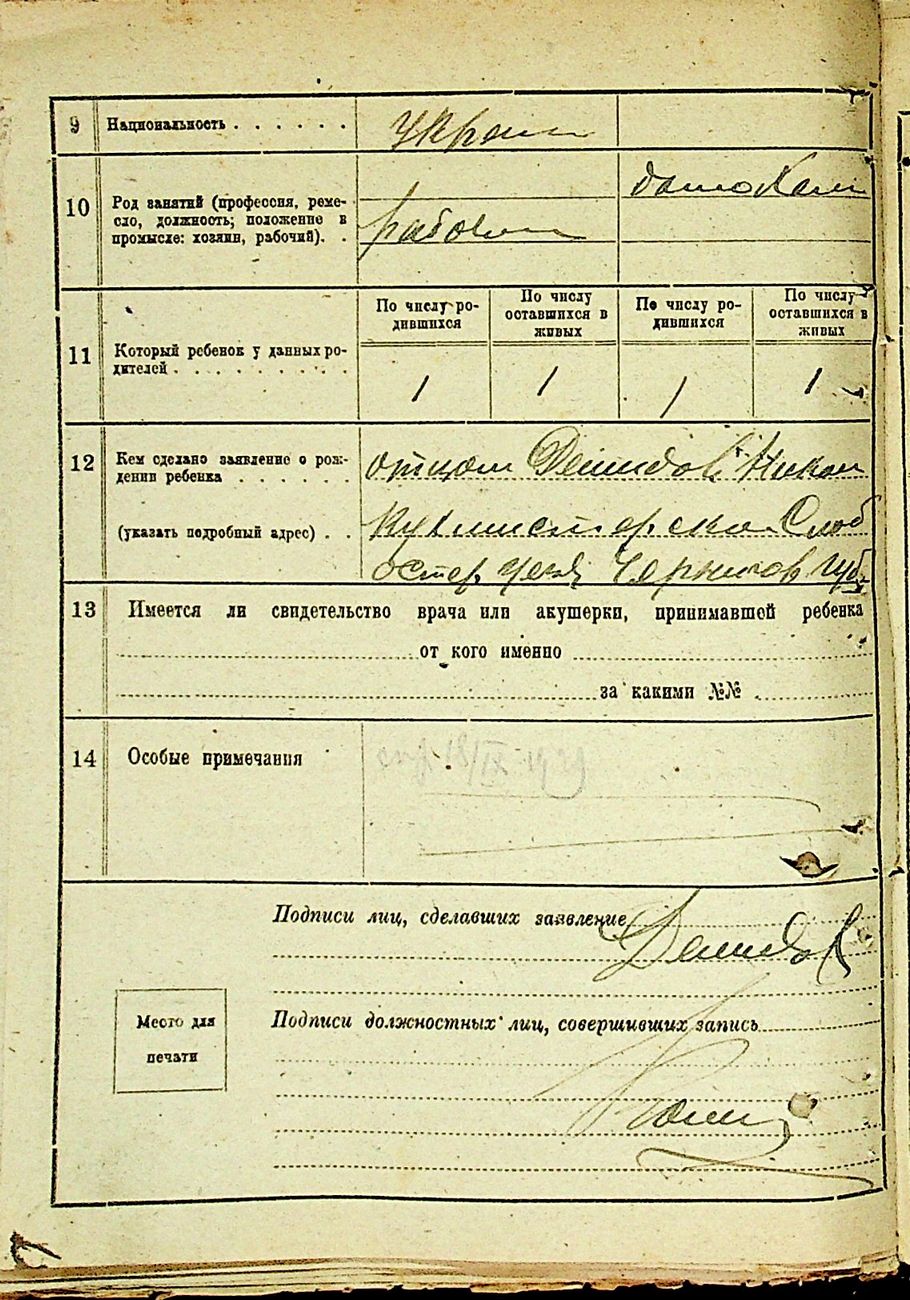 9 Национальность . . . . . . Украин
10 Род занятий (профессия, реме-
сло, должность; положение в
промысле: хозяин, рабочий). .
домохоз
рабочий
По числу ро-
дившихся
По числу
оставшихся в
живых
По числу ро-
дившихся
По числу
оставшихся в
живых
11 Который ребенок у данных ро-
дителей . . . . . . . . . .
1 1 1 1
12 Кем сделано заявление о рож-
дении ребенка . . . . . .
отцом Демидов Никол
(указать подробный адрес) . .
Кухмистерская Слоб
Остер уезд Чернигов губ
13 Имеется ли свидетельство врача или акушерки, принимавшей ребенка
от кого именно
за какими №№
14 Особые примечания
18/IX 1929
Подписи лиц, сделавших заявление
Демидов
Место для
печати
Подписи должностных лиц, совершивших запись